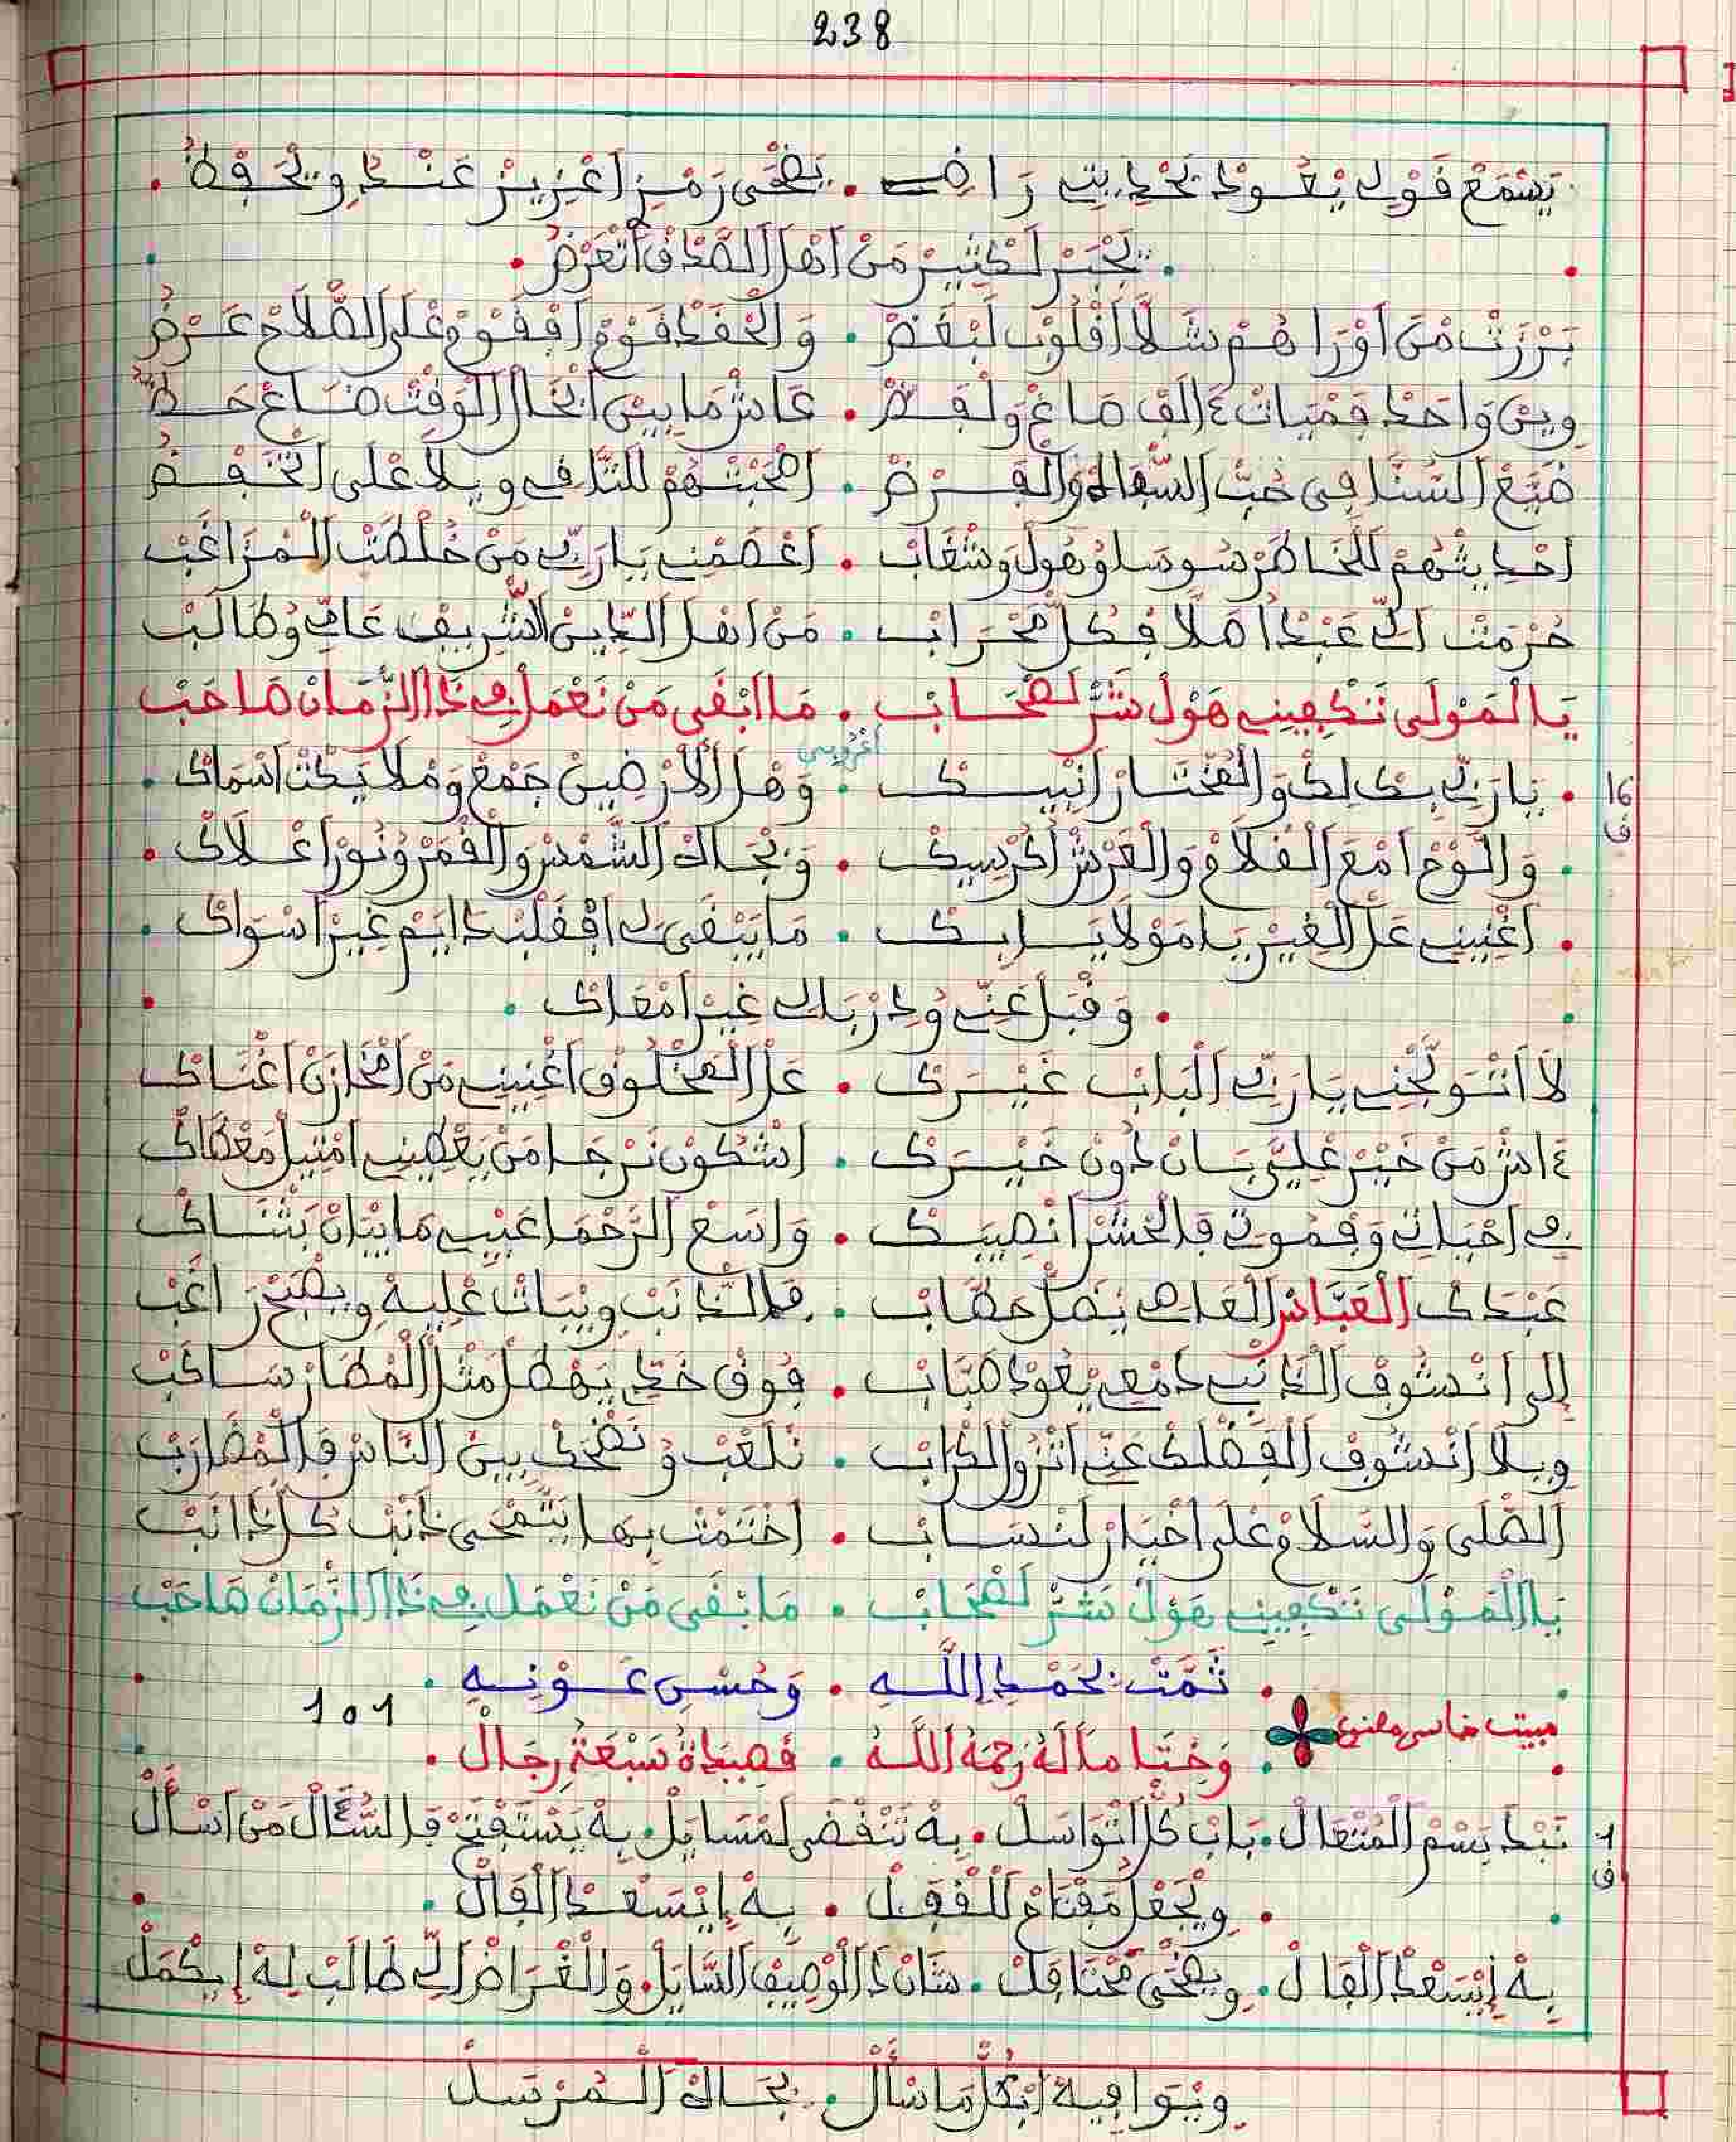 238
يَسْمَعْ قَوْلِي يْعُودْ بَحْدِيتِي رَاضِي . يَضْحَى رَمْزِ اعْزِيزْ عَنْدُ وِيحَفْظُ .
. تَجْبَرْ لَكْثِيرْ مَنْ اهْلَ الصَّدْقْ اتْعَرْضُ .
بَرْزَتْ مْنْ اوْرَاهُمْ شَلَّا اقْلُوبْ لَبْغَضْ . وَالْحَقْدْ قَوْمْ افْقَوْمْ عْلَى الصَّلَاحْ عَرْضُ
وِينْ وَاحَدْ فَمْيَاتْ ءَالَفْ صَاغْ وَلْفَضْ . عَاشْ مَا بِينْ انْجَالْ الْوَقْتْ ضَاعْ حَظُّ
ضَيَّعْ السُّنَّا فِي حُبّْ السَّفَاهْ وَالْفَرْضْ . اصْحَبْتْهُمْ لَلتّْلَافْ وِيلَا عْلَى التَّخَفْضُ
احْدِيثْهُمْ لَلْخَاطَرْ سُوسَا وُهُولْ وَشْغَابْ . اعْصَمْنِي يَا رَبِّي مَنْ خُلْطَتْ الْمْزَاغَبْ
حُرْمَتْ الِّي عَبْدْ اصْلَا فْكُلّْ مَحْرَابْ . مَنْ اهْلَ الدِّينْ الشّْرِيفْ عَامِّي وُطَالَبْ
يَا الْمَوْلَى تَكْفِينِي هَوْلْ شَرّْ لَصْحَابْ . مَا ابْقَى مَنْ نَعْمَلْ فِي ذَا الزّْمَانْ صَاحَبْ
اعروبي
16
ف
. يَارَبِّي بِكْ لِكْ وَالْمُخْتَارْ انْبِيكْ . وَهْلَ الَارْضِينْ جَمْعْ وَمْلَايَكْتْ اسْمَاكْ .
. وَاللَّوْحْ امْعَ الْقْلَامْ وَالْعَرْشْ اكُرْسِيكْ . وَبْجَاهْ الشَّمْسْ وَالْقْمَرْ وُنُورْ اعْلَاكْ .
. اغْنِينِي عَلْ الْغِيرْ يَامَوْلَايَ ابِكْ . مَا يَبْقَى لِي افْقَلْبْ دَايَمْ غِيرْ اسْوَاكْ .
. وَقْبَلْ عَنِّي وُدَرْ بَالِي غِيرْ امْعَاكْ .
لَا انْتْوَجّْنِي يَارَبِّي الْبَابْ غَيْرَكْ . عَلْ الْمَخْلُوقْ اغْنِينِي مَنْ امْخَازَنْ اغْنَاكْ
ءَاشْ مَنْ خَيْرْ عْلِيَّ بَانْ دُونْ خَيْرَكْ . اشْكُونْ نَرْجَا مَنْ يَعْطِينِي امْثِيلْ مَعْطَاكْ
فِي احْيَاتِي وَفْمُوتِي فَالْحَشْرْ انْصِيبَكْ . وَاسَعْ الرَّحْمَا عَيْبِي مَا يْبَانْ بَثْنَاكْ
عَبْدَكْ الْعَبَّاسْ الْعَاصِي يْضَلّْ حَطَّابْ . فَالذَّانَبْ وِيْبَاتْ عْلِيهْ وِيصْبَحْ رَاغَبْ
إِلَى انْشُوفْ الذَّانْبِي دَمْعِي يْعُودْ صَبَّابْ . فُوقْ خَدِّي يَهْطَلْ مَثْلْ الْمْطَارْ سَاكَبْ
وِيلَا انْشُوفْ الْفَضْلَكْ عَنِّي اتْزُولْ الكْرَابْ . نَلْعَبْ وُنَضْحَكْ بِينْ النَّاسْ فَالْمْضَارَبْ
الصّْلَى وَالسّْلَامْ عْلَى اخْيَارْ لَنْسَابْ . اخْتَمْتْ بِهَا يَتَّمْحَى ذَنْبْ كُلْ ذَانَبْ
يَا الْمَوْلَى تَكْفِينِي هَوْلْ شَرّْ لَصْحَابْ . مَا بْقَى مَنْ نَعْمَلْ فِي ذَا الزّْمَانْ صَاحَبْ
. ثَمَّتْ بِحَمْدِ اللَّهِ . وَحُسْنِ عَوْنِهِ .
101
مبيت خماسي
. وَخِتَامًا لَهُ رَحِمَهُ اللَّهُ . قَصِيدَةُ سَبْعَةُ رِجَالْ .
1
ف
نَبْدَ بَسْمْ الْمُتْعَالْ . بَابْ كُلّْ اتْوَاسَلْ . بِهْ تَنْقْضَى لَمْسَايَلْ . بِهْ يَسْتَفْتَحْ فَالسُّؤَالْ مَنْ اسْأَلْ
. وِيجْعَلْ مَفْتَاحْ لَلْقْفَلْ . بِهْ إِيْسَعْدْ الْفَالْ .
بِهْ إِيْسَعْدْ الْفَالْ . وِيضْحَى مَحْتَافَلْ . شَانْ دَ الْوْصِيفْ السَّايَلْ . وَالْغْرَاضْ الِّي طَالَبْ لِهْ إِيكْمَلْ
وِيْوَافِيهْ ابْكُلّْ مَا سْأَلْ . بَجَاهْ الْمُرْسَلْ